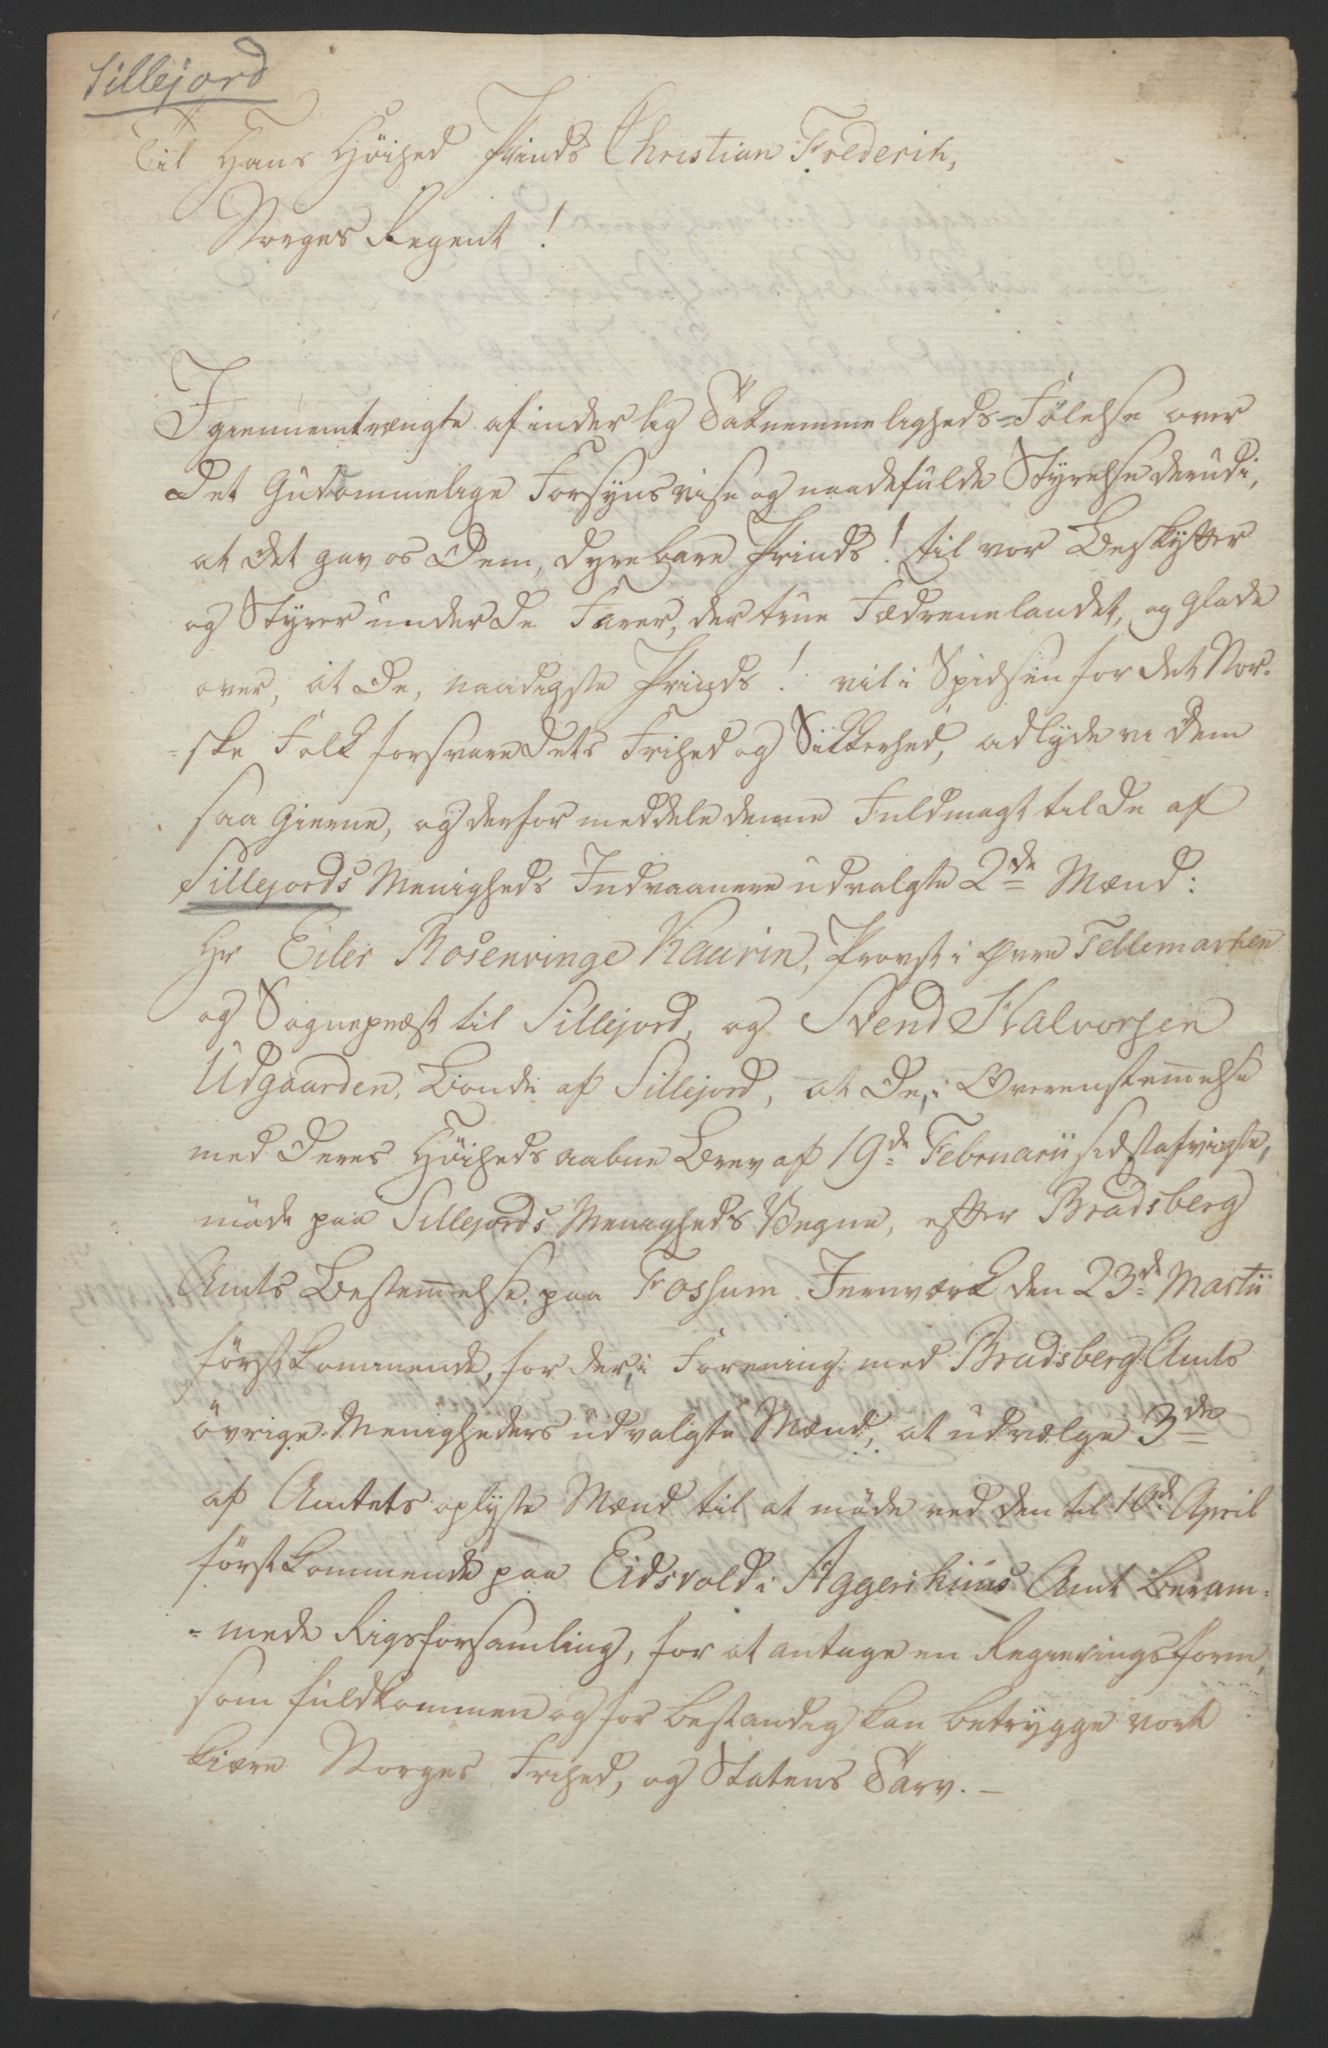 Sillejord
Til Hans Höihed Prinds Christian Frederik,
Norges Regent!
Igiennemtrængte af inderlig Taknemmeligheds-Følelse over
det Guddommelige Forsyns vise og naadefulde Styrelse derudi,
at det gav os Dem, dyrebare Prinds! til vor Beskytter
og Styrer under de Farer, der true Fædrenelandet, og glade
over, at De, naadigste Prinds! vil i Spidsen for det Nor-
-ske Folk forsvare dets Frihed og Sikkerhed, adlyde vi Dem
saa gierne, og derfor meddele denne Fuldmagt til de af
Sillejords Menigheds Indvaanere udvalgte 2de Mænd:
Hr Eiler Rosenvinge Kaurin, Provst i Øvre Tellemarken
og Sognepræst til Sillejord, og Svend Halvorsen
Udgaarden, Bonde af Sillejord, at De, i Overenstemmelse
med Deres Höiheds aabne Brev af 19de Februarii sidstafvigte,
möde paa Sillejords Menigheds Vegne, efter Bradsberg
Amts Bestemmelse, paa Fossum Jernværk den 23de Martii
førstkommende, for der, i Forening med Bradsberg Amts
övrige Menigheders udvalgte Mænd, at udvælge 3de
af Amtets oplyste Mænd til at möde ved den til 10de April
førstkommende paa Eidsvold i Aggershuus Amt beram-
-mede Rigsforsamling, for at antage en Regieringsform,
som fuldkommen og for bestandig kan betrygge vort
kiære Norges Frihed, og Statens Tarv. —